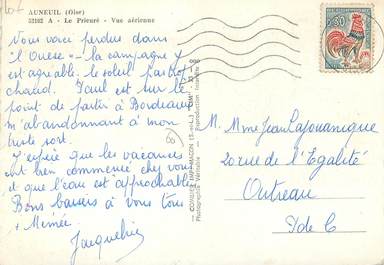 AUNEUIL (Oise)
52102 A - Le Prieuré - Vue aérienne
Nous voici perdues dans
l'Ouese" - la campagne
est agréable. le soleil pas trop
chaud. Paul est sur le
point de partir à Bordeaux
m'abandonnant à mon
triste sort.
J'espère que les vacances
ont bien commencé chez vous
et que l'eau est approchable
Bons baisers à vous tous
+ Mémée.
Jacqueline
COMBIER IMP. MACON (S.-et-L.) "CIM"
Photographie Véritable - Reproduction Interdite
0,30
M. Mme Jean Lapouanigue
20 rue de l'Egalité
Outreau
P de C